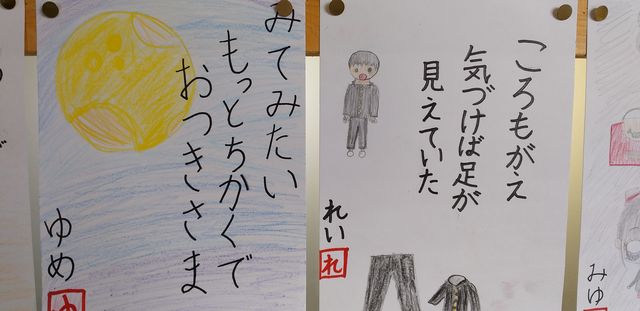 みてみたい
もっとちかくで
おつきさま
ゆめ
ゆ
ころもがえ
気づけば足が
見えていた
れい
れ
みゆ